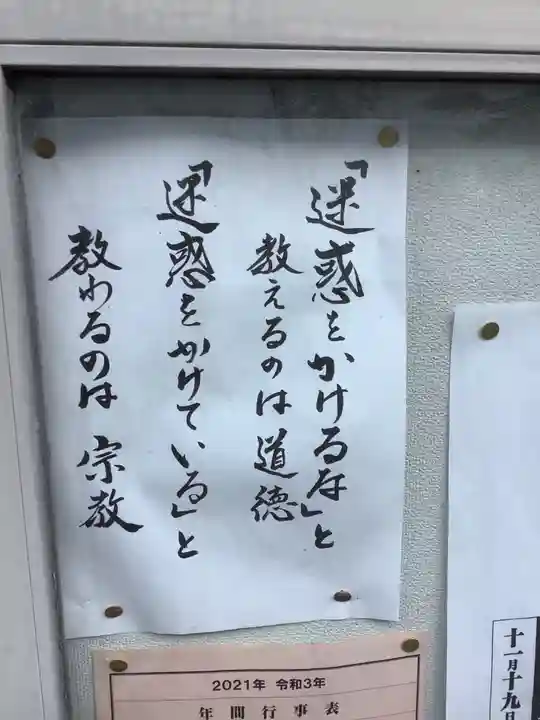 「迷惑をかけるな」と
教えるのは道徳
「迷惑をかけている」と
教わるのは 宗教
十一月十九日
2021年 令和3年
年間行事表